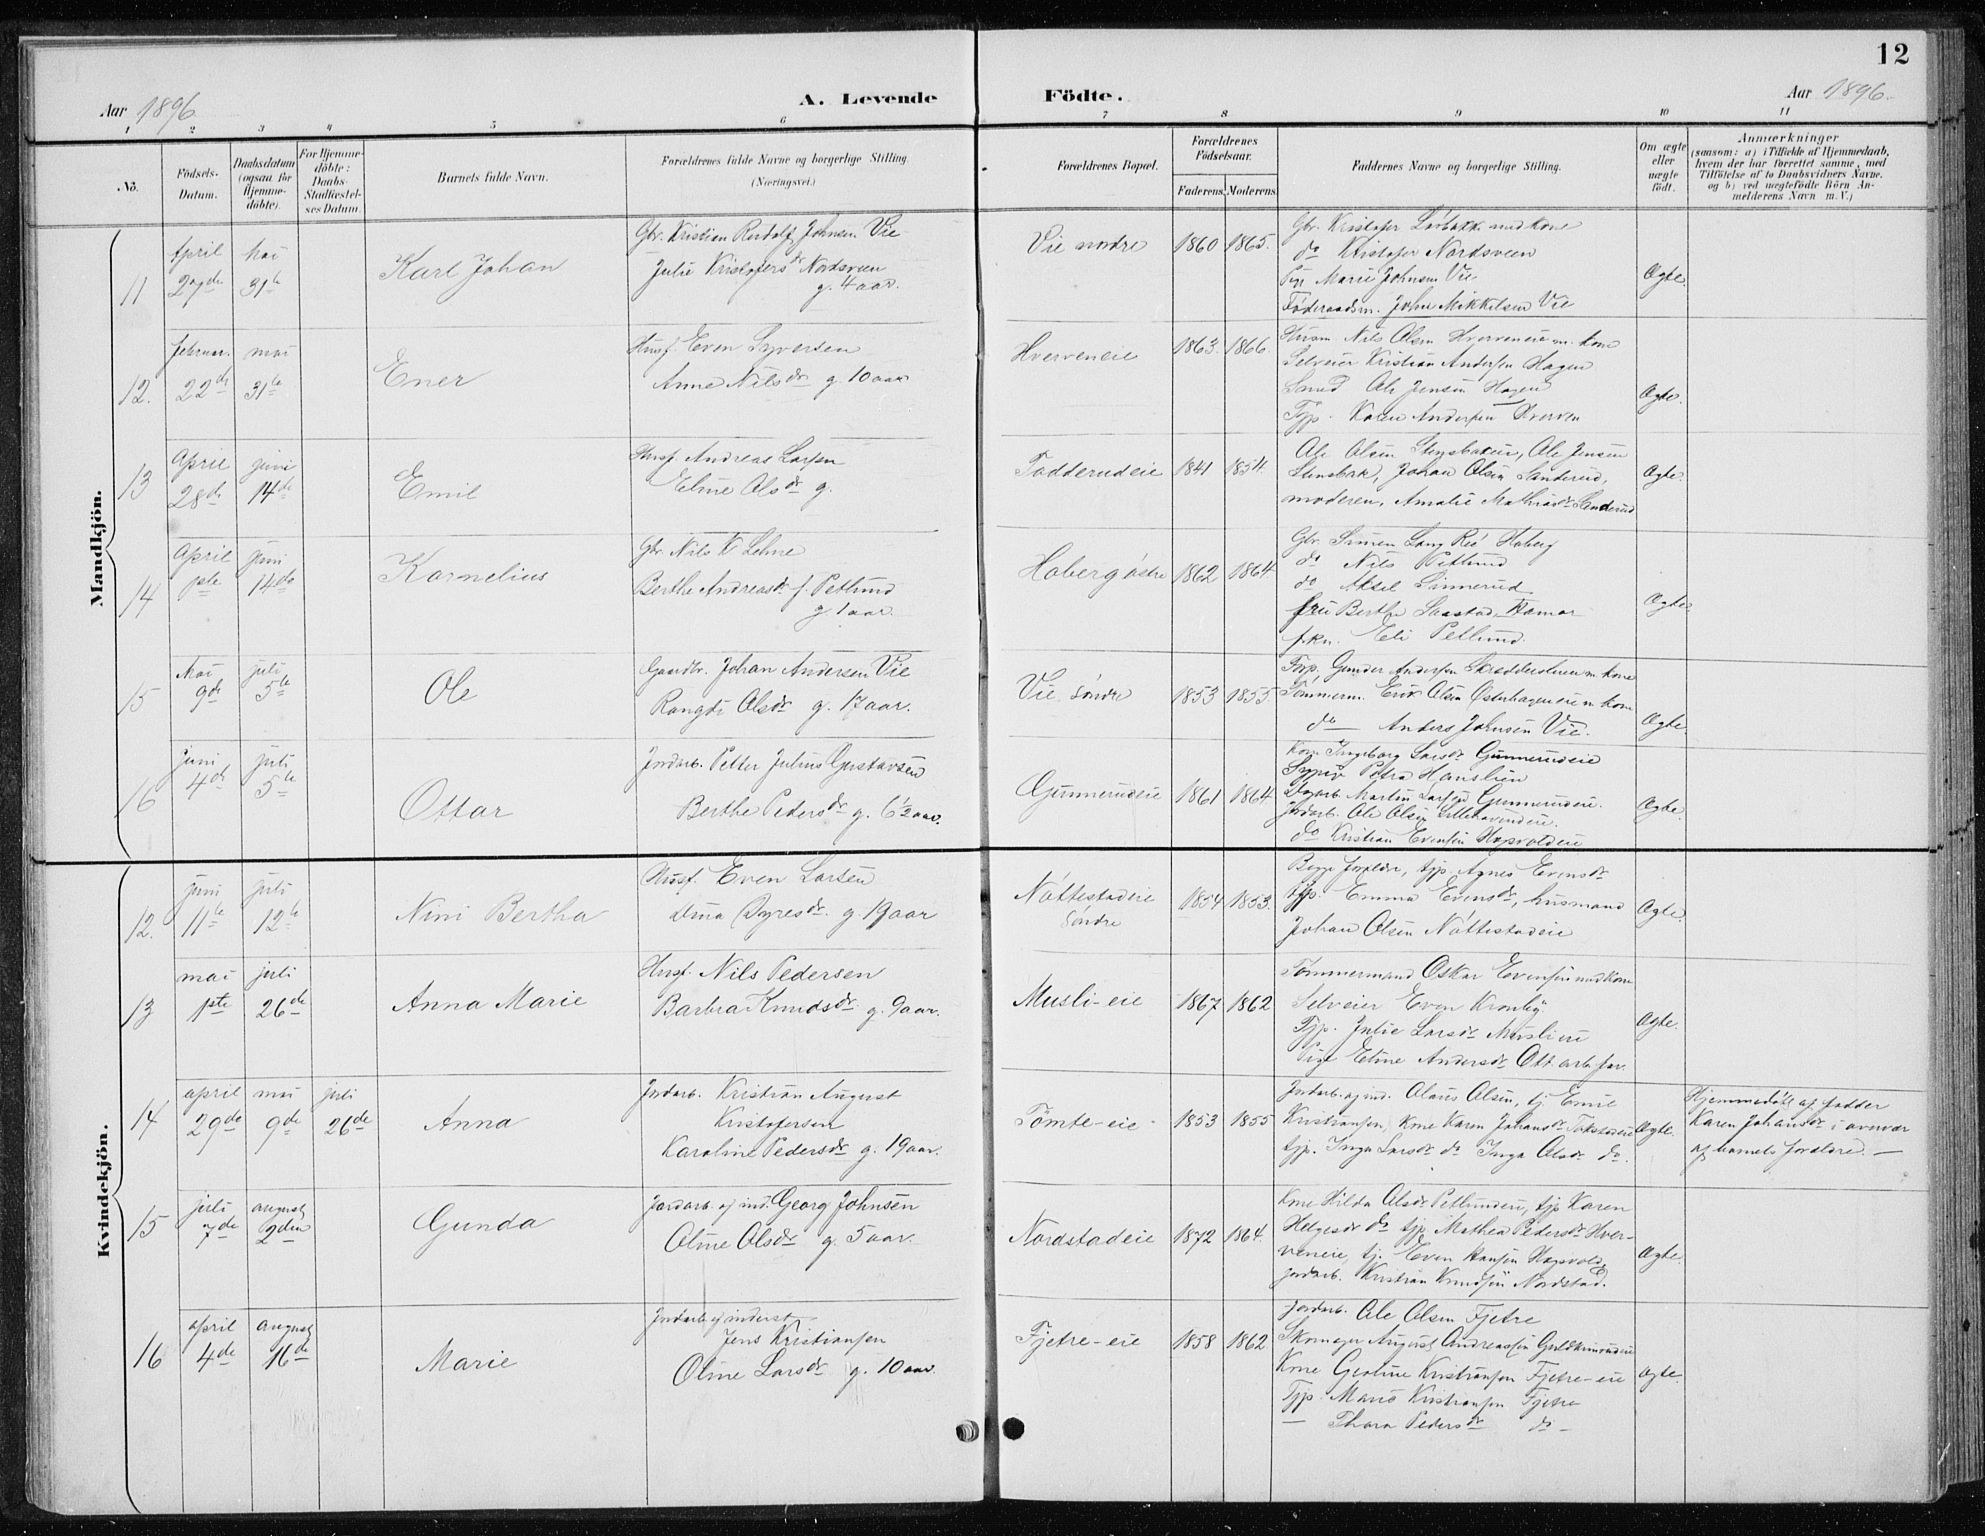 12
Aar 1896
A. Levende
Födte.
Aar 1896.
1 2 3 4 5 6 7 8 9 10 11
No.
Födsels-
Datum.
Daabsdatum
(ogsaa for
Hjemme-
döbte).
For Hjemme-
döbte:
Daabs-
Stadfæstel-
ses Datum.
Barnets fulde Navn.
Forældrenes fulde Navne og borgerlige Stilling.
(Næringsvei.)
Forældrenes Bopæl.
Forældrenes
Födselsaar.
Faderens. Moderens.
Faddernes Navne og borgerlige Stilling.
Om ægte
eller
uægte
födt.
Anmærkninger
(saasom: a) i Tilfælde af Hjemmedaab,
hvem der har forrettet samme, med
Tilföielse af to Daabsvidners Navne.
og b) ved uægtefödte Börn An-
melderens Navn m. V.)
Mandkjön.
11
April
27de
mai
31te
Karl Johan
Gbr. Kristian Rudolf Johnsen Vie
Julie Kristofersdr Nordsveen
g. 4 aar.
Vie nordre
1860 1865.
Gbr. Kristofer med kone
do Kristofer Nordsveen
Pige Marie Johnsen Vie
Föderaadsm. John Mikkelsen Vie
Ægte.
12.
februar.
22de
mai
31te
Ener
Husf. Even Syversen
Anne Nilsdr g. 10 aar
Hverveneie
1863. 1866.
Husm. Nils Olsen Hverveneie m. kone
Selveier Kristian Andersen Hagen
Smed Ole Jensen Hagen
Tjp. Karen Andersen Hverven
Ægte.
13
April
28de
juni
14de
Emil
Husf. Andreas Larsen
Eline Olsdr g.
Fodderudeie
1841 1854.
Ole Olsen Stensbakeie, Ole Jensen
Stensbak, Johan Olsen Sanderud,
moderen, Amalie Mathiasdr Sanderud
Ægte.
14
April
1ste
Juni
14de
Kornelius
Gbr. Nils K Lehne
Berthe Andreasdr f. Petlund
g. 1 aar.
Hoberg östre
1862 1864
Gbr. Simen Lang Hoberg
do Nils Petlund
do Aksel Linnerud
fru Berthe Saastad, Hamar
frkn. Eli Petlund.
Ægte
15
Mai
9de
juli
5te
Ole
Gaardbr. Johan Andersen Vie
Rangdi Olsdr g. 17 aar.
Vie söndre
1853 1855.
Forp. Gunder Andersen m. kone
Tömmerm. Erik Olsen Österhageneie m kone
do — Anders Johnsen Vie.
Ægte
16
juni
4de
juli
5te
Ottar
Jordarb. Petter Julius Gustavsen
Berthe Pedersdr g. 6½ aar.
Gunnerudeie
1861 1864.
Kone Ingeborg Larsdr Gunnerudeie
Sypige Petra Hanslien
Dagarb. Martin Larsen Gunnerudeie.
Jordarb. Ole Olsen
do Kristian Evensen Hopvoldeie
Ægte.
Kvindekjön.
12.
juni
11te
juli
12te
Nini Bertha
Husf. Even Larsen
Dina Dyresdr. g. 19 aar
Nöttestadeie
Söndre
1854 1853.
Begge foreldre, tjp Agnes Evensdr
tjp. Emma Evensdr, husmand
Johan Olsen Nöttestadeie
Ægte.
13
mai
1ste
juli
26de
Anna Marie
Husf. Nils Pedersen
Barbra Knudsdr g. 9 aar.
Musli-eie
1867 1862
Tömmermand Oskar Evensen med kone
Selveier Even Kronby
Tjp. Julie Larsdr Muslieie
Pige Eline Andersdr
Ægte.
14
april
29de
mai
9de
juli
26de
Anna
Jordarb. Kristian August
Kristofersen
Karoline Pedersdr g. 19 aar.
Tömte-eie
1853 1855
Jordarb. og ind. Olaus Olsen, tj Emil
Kristiansen, kone Karen Johansdr Tokstadeie
tjp. Inga Larsdr do Inga Olsdr do.
Ægte.
Hjemmedöbt af fadder
Karen Johansdr i overvær
af barnets foreldre. —
15
juli
7de
august
2den
Gunda
Jordarb. og ind. Georg Johnsen
Oline Olsdr g. 5 aar.
Nordstadeie
1872 1864.
Kone Hilda Olsdr Petlundeie, tjp Karen
Helgesdr do tjp Mathea Pedersdr Hver-
veneie, tj. Even Hansen Hopvold,
jordarb. Kristian Knudsen Nordstad.
Ægte.
16
april
4de
august
16de
Marie
Jordarb og inderst
Jens Kristiansen
Oline Larsdr g. 10 aar.
Fjetre-eie
1858 1862
Jordarb. Ole Olsen Fjetre
Skomager August Andreassen
Kone Gerline Kristiansen Fjetre-eie
Tjp. Marie Kristiansen Fjetre
— Thora Pedersdr do —
Ægte.